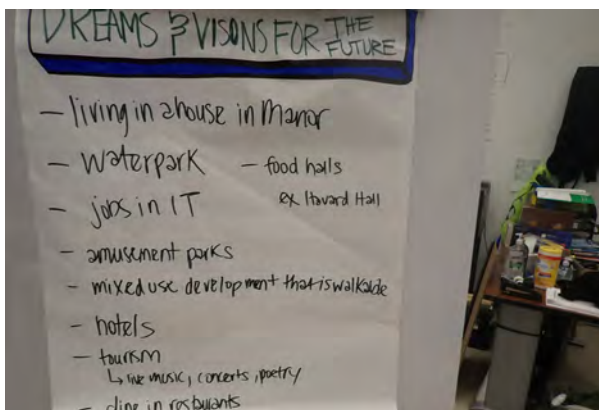 DREAMS & VISONS FOR THE FUTURE
- living in a house in Manor
- waterpark
- food halls
ex Havard Hall
- jobs in IT
- amusement parks
- mixed use development that is walkable
- hotels
- tourism
↳ live music, concerts, poetry
- dine in resturants